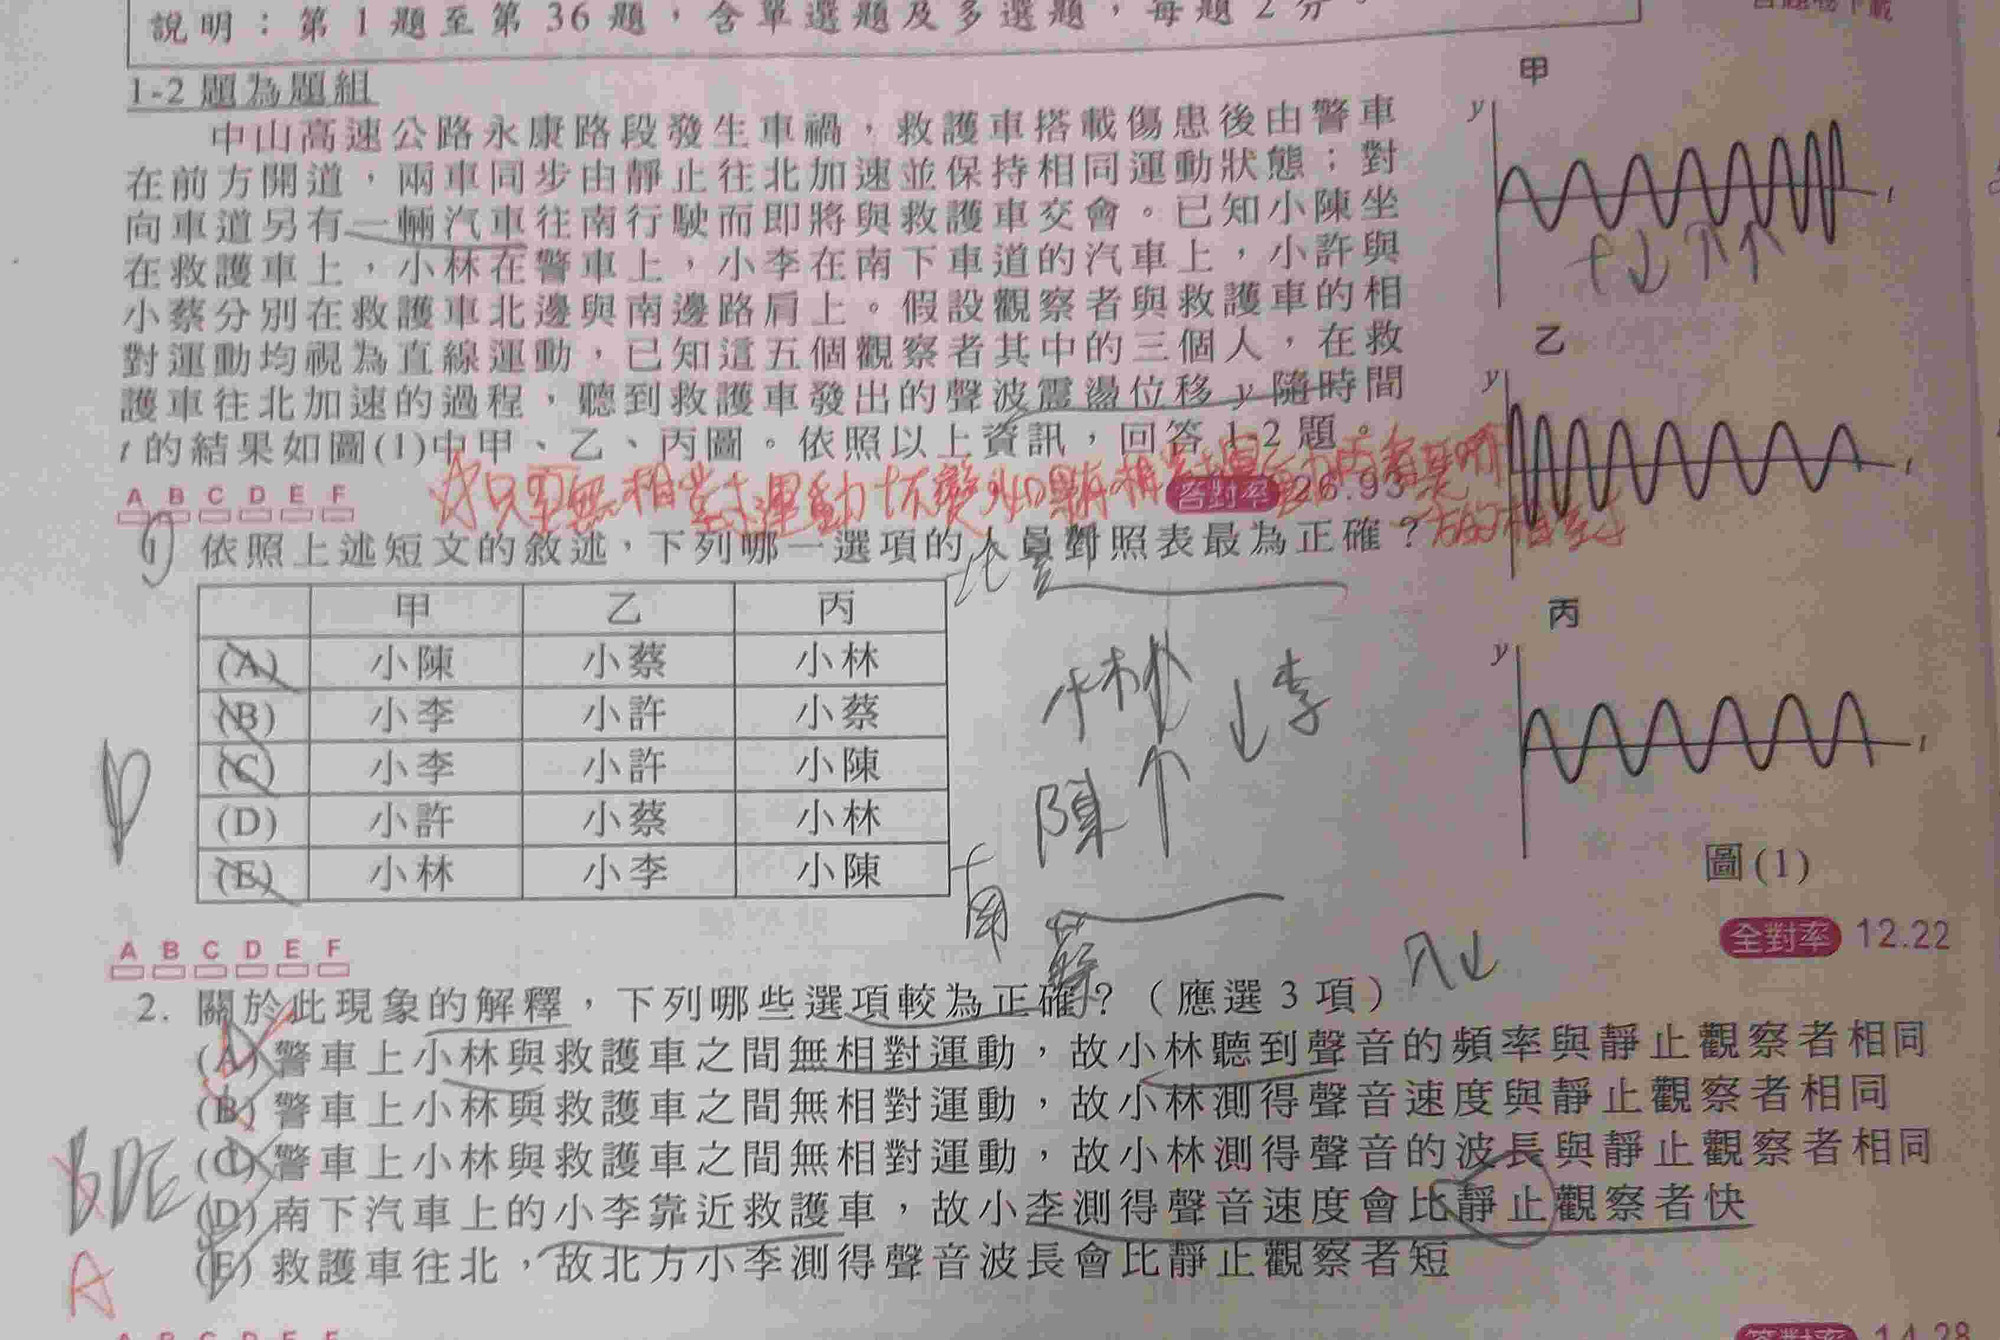 說明：第 1 題至第 36 題，含單選題及多選題，每題 2 分。
1-2 題為題組
中山高速公路永康路段發生車禍，救護車搭載傷患後由警車
在前方開道，兩車同步由靜止往北加速並保持相同運動狀態；對
向車道另有一輛汽車往南行駛而即將與救護車交會。已知小陳坐
在救護車上，小林在警車上，小李在南下車道的汽車上，小許與
小蔡分別在救護車北邊與南邊路肩上。假設觀察者與救護車的相
對運動均視為直線運動，已知這五個觀察者其中的三個人，在救
護車往北加速的過程，聽到救護車發出的聲波震盪位移 y 隨時間
t 的結果如圖(1)中甲、乙、丙圖。依照以上資訊，回答 1-2 題。
甲
y
t
乙
y
t
丙
y
t
圖(1)
A B C D E F
答對率 26.93
1 依照上述短文的敘述，下列哪一選項的人員對照表最為正確？
甲 乙 丙
(A) 小陳 小蔡 小林
(B) 小李 小許 小蔡
(C) 小李 小許 小陳
(D) 小許 小蔡 小林
(E) 小林 小李 小陳
D
北
林
↓李
陳↑
南
蔡
全對率 12.22
A B C D E F
2. 關於此現象的解釋，下列哪些選項較為正確？（應選 3 項）
(A) 警車上小林與救護車之間無相對運動，故小林聽到聲音的頻率與靜止觀察者相同
(B) 警車上小林與救護車之間無相對運動，故小林測得聲音速度與靜止觀察者相同
(C) 警車上小林與救護車之間無相對運動，故小林測得聲音的波長與靜止觀察者相同
(D) 南下汽車上的小李靠近救護車，故小李測得聲音速度會比靜止觀察者快
(E) 救護車往北，故北方小李測得聲音波長會比靜止觀察者短
BDE
A
A B C D E F
答對率 14.28